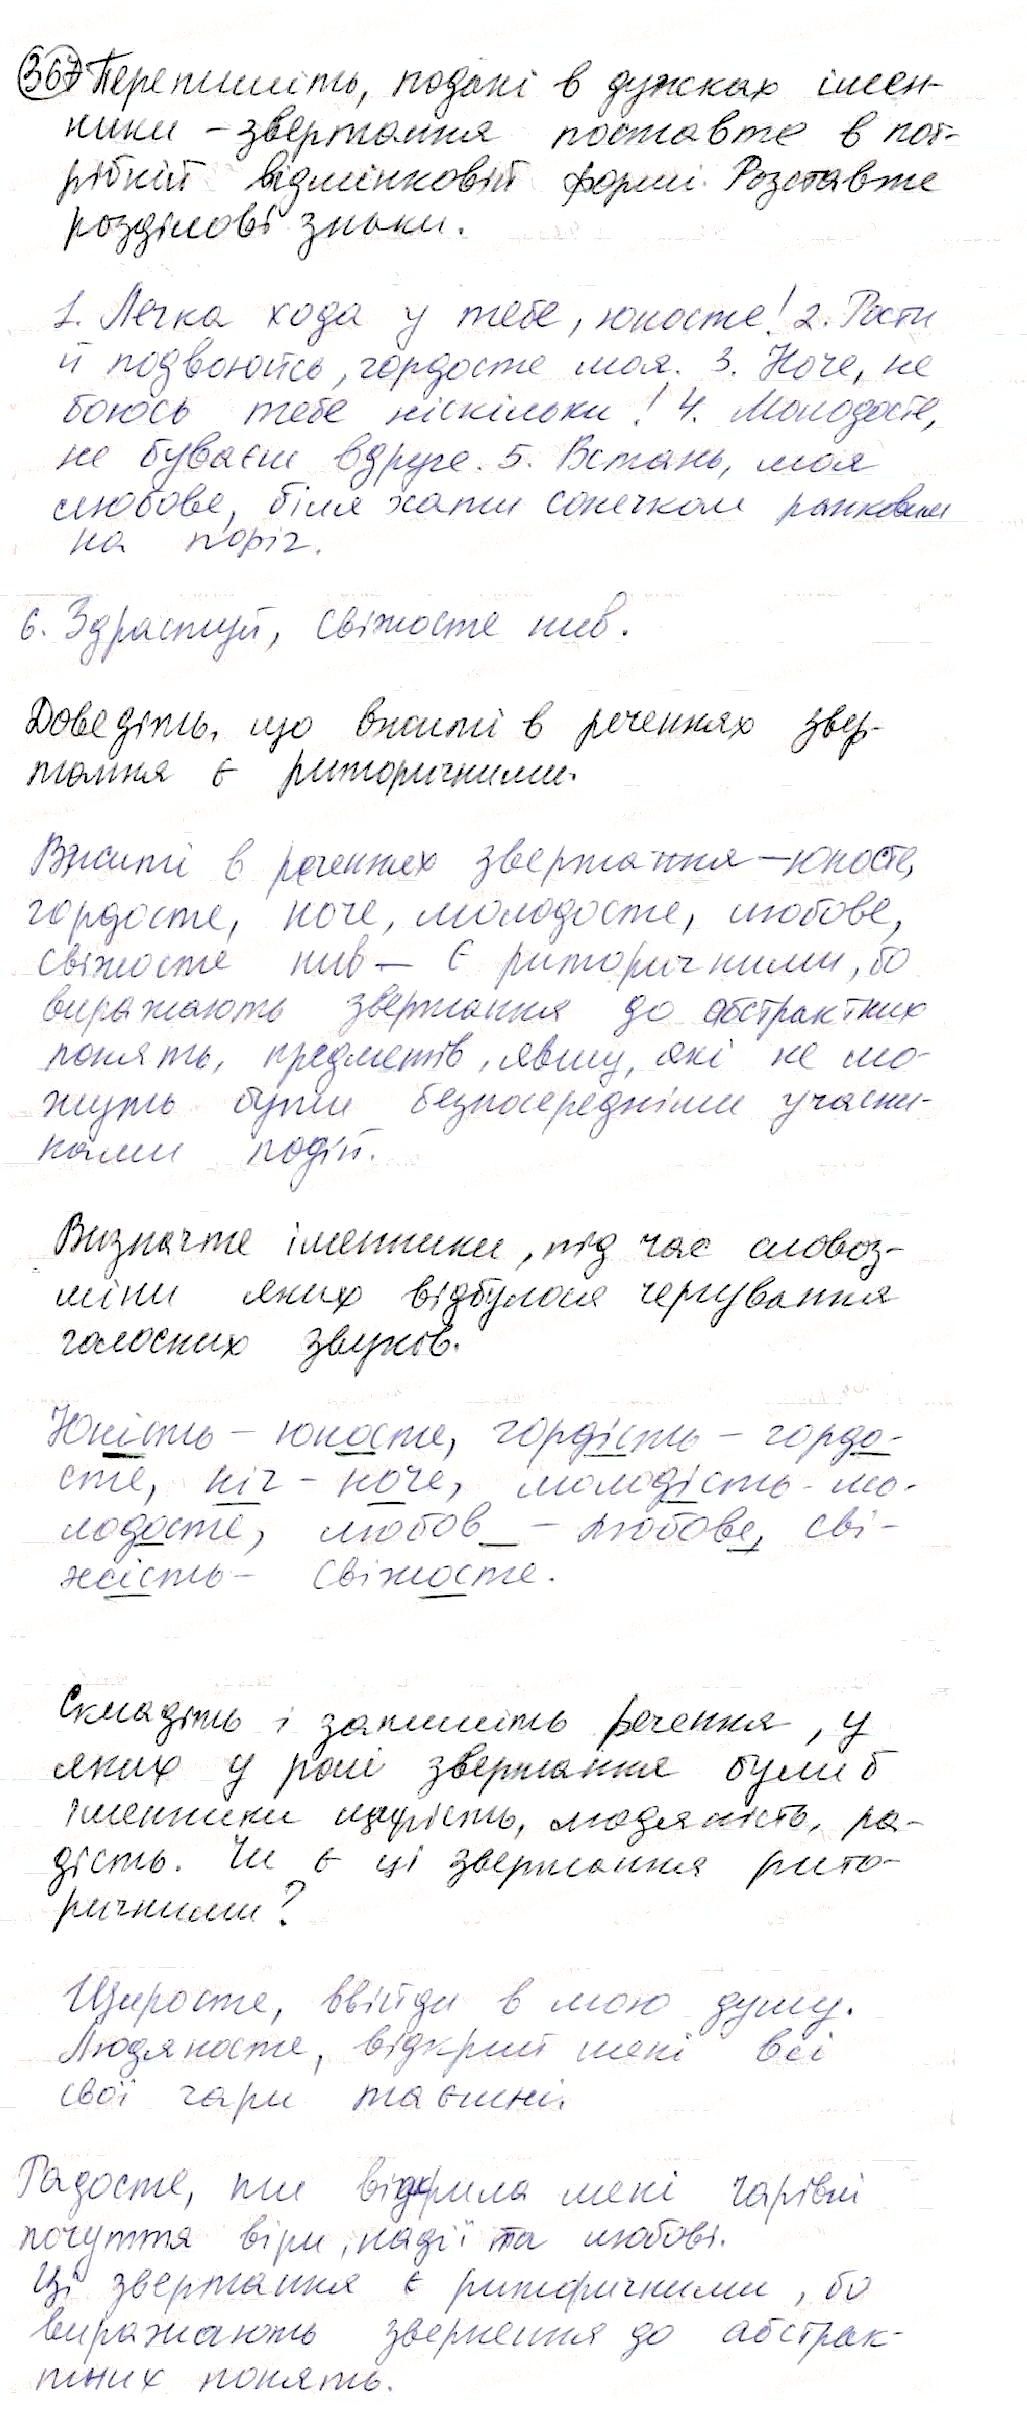 367 Перепишіть, подані в дужках імен-
ники - звертання поставте в пот-
рібній відмінковій формі. Розставте
розділові знаки.
1. Легка хода у тебе, юносте! 2. Рости
й подвоюйсь, гордосте моя. 3. Ноче, не
боюсь тебе ніскільки! 4. Молодосте,
не буваєш вдруге. 5. Встань, моя
любове, біля хати сонечком ранковим
на поріг.
6. Здрастуй, свіжосте нив.
Доведіть, що вжиті в реченнях звер-
тання є риторичними.
Вжиті в реченнях звертання — юносте,
гордосте, ноче, молодосте, любове,
свіжосте нив — є риторичними, бо
виражають звертання до абстрактних
понять, предметів, явищ, які не мо-
жуть бути безпосередніми учасни-
ками подій.
Визначте іменники, під час словоз-
міни яких відбулося чергування
голосних звуків.
Юність - юносте, гордість - гордо-
сте, ніч - ноче, молодість - мо-
лодосте, любов_ - любове, сві-
жість - свіжосте.
Складіть і запишіть речення, у
яких у ролі звертання були б
іменники щирість, людяність, ра-
дість. Чи є ці звертання рито-
ричними?
Щиросте, ввійди в мою душу.
Людяносте, відкрий мені всі
свої чари таємні.
Радосте, ти відкрила мені чарівні
почуття віри, надії та любові.
Ці звертання є риторичними, бо
виражають звернення до абстрак-
тних понять.